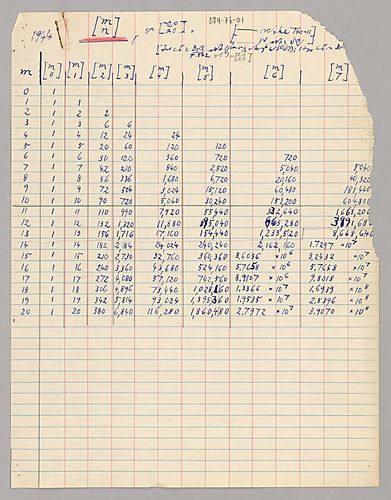 1944 [m n] 089-76-01
m [m 0] [m 1] [m 2] [m 3] [m 4] [m 5] [m 6] [m 7]
0 1
1 1 1
2 1 2 2
3 1 3 6 6
4 1 4 12 24 24
5 1 5 20 60 120 120
6 1 6 30 120 360 720 720
7 1 7 42 210 840 2,520 5,040 5,040
8 1 8 56 336 1,680 6,720 20,160 40,320
9 1 9 72 504 3,024 15,120 60,480 181,440
10 1 10 90 720 5,040 30,240 151,200 604,800
11 1 11 110 990 7,920 55,440 332,640 1,663,200
12 1 12 132 1,320 11,880 95,040 665,280 3,991,680
13 1 13 156 1,716 17,160 154,440 1,235,520 8,648,640
14 1 14 182 2,184 24,024 240,240 2,162,160 1.7297 ×10⁷
15 1 15 210 2,730 32,760 360,360 3.6036 ×10⁶ 3.2432 ×10⁷
16 1 16 240 3,360 43,680 524,160 5.7658 ×10⁶ 5.7658 ×10⁷
17 1 17 272 4,080 57,120 742,560 8.9107 ×10⁶ 9.8018 ×10⁷
18 1 18 306 4,896 73,440 1,028,160 1.3366 ×10⁷ 1.6039 ×10⁸
19 1 19 342 5,814 93,024 1,395,360 1.9535 ×10⁷ 2.5396 ×10⁸
20 1 20 380 6,840 116,280 1,860,480 2.7972 ×10⁷ 3.9070 ×10⁸